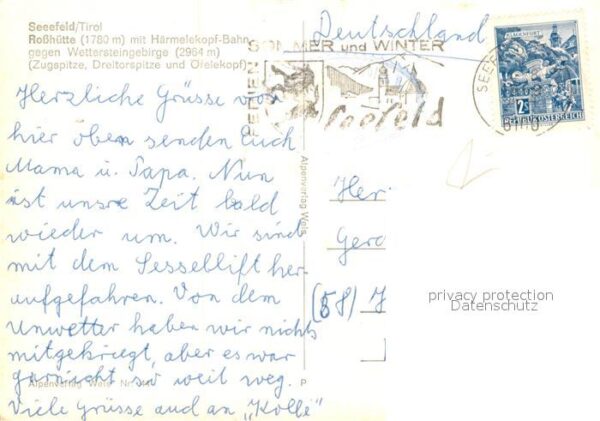 Seeefeld/Tirol
Roßhütte (1780 m) mit Härmelekopf-Bahn
gegen Wettersteingebirge (2964 m)
(Zugspitze, Dreitorspitze und Öfelekopf)
Herzliche Grüsse von
hier oben senden Euch
Mama u. Papa. Nun
ist unsre Zeit bald
wieder um. Wir sind
mit dem Sessellift her-
aufgefahren. Von dem
Unwetter haben wir nichts
mitgekriegt, aber es war
garnicht so weit weg.
Viele Grüsse auch an "Kolle"
Alpenverlag Wels Nr.
P
Alpenverlag Wels
Deutschland
FERIEN SOMMER und WINTER
Seefeld
SEEF
KLAGENFURT
2S
REPUBLIK ÖSTERREICH
Her
Gerd
(58)
privacy protection
Datenschutz